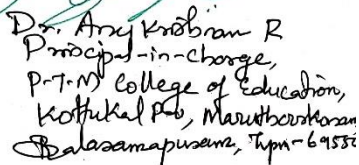 Dr. Anu Krishnan R
Principal-in-charge,
P.T.M College of Education,
Kottukal P.O, Maruthoorkonam
Balaramapuram, Tvpm-69550